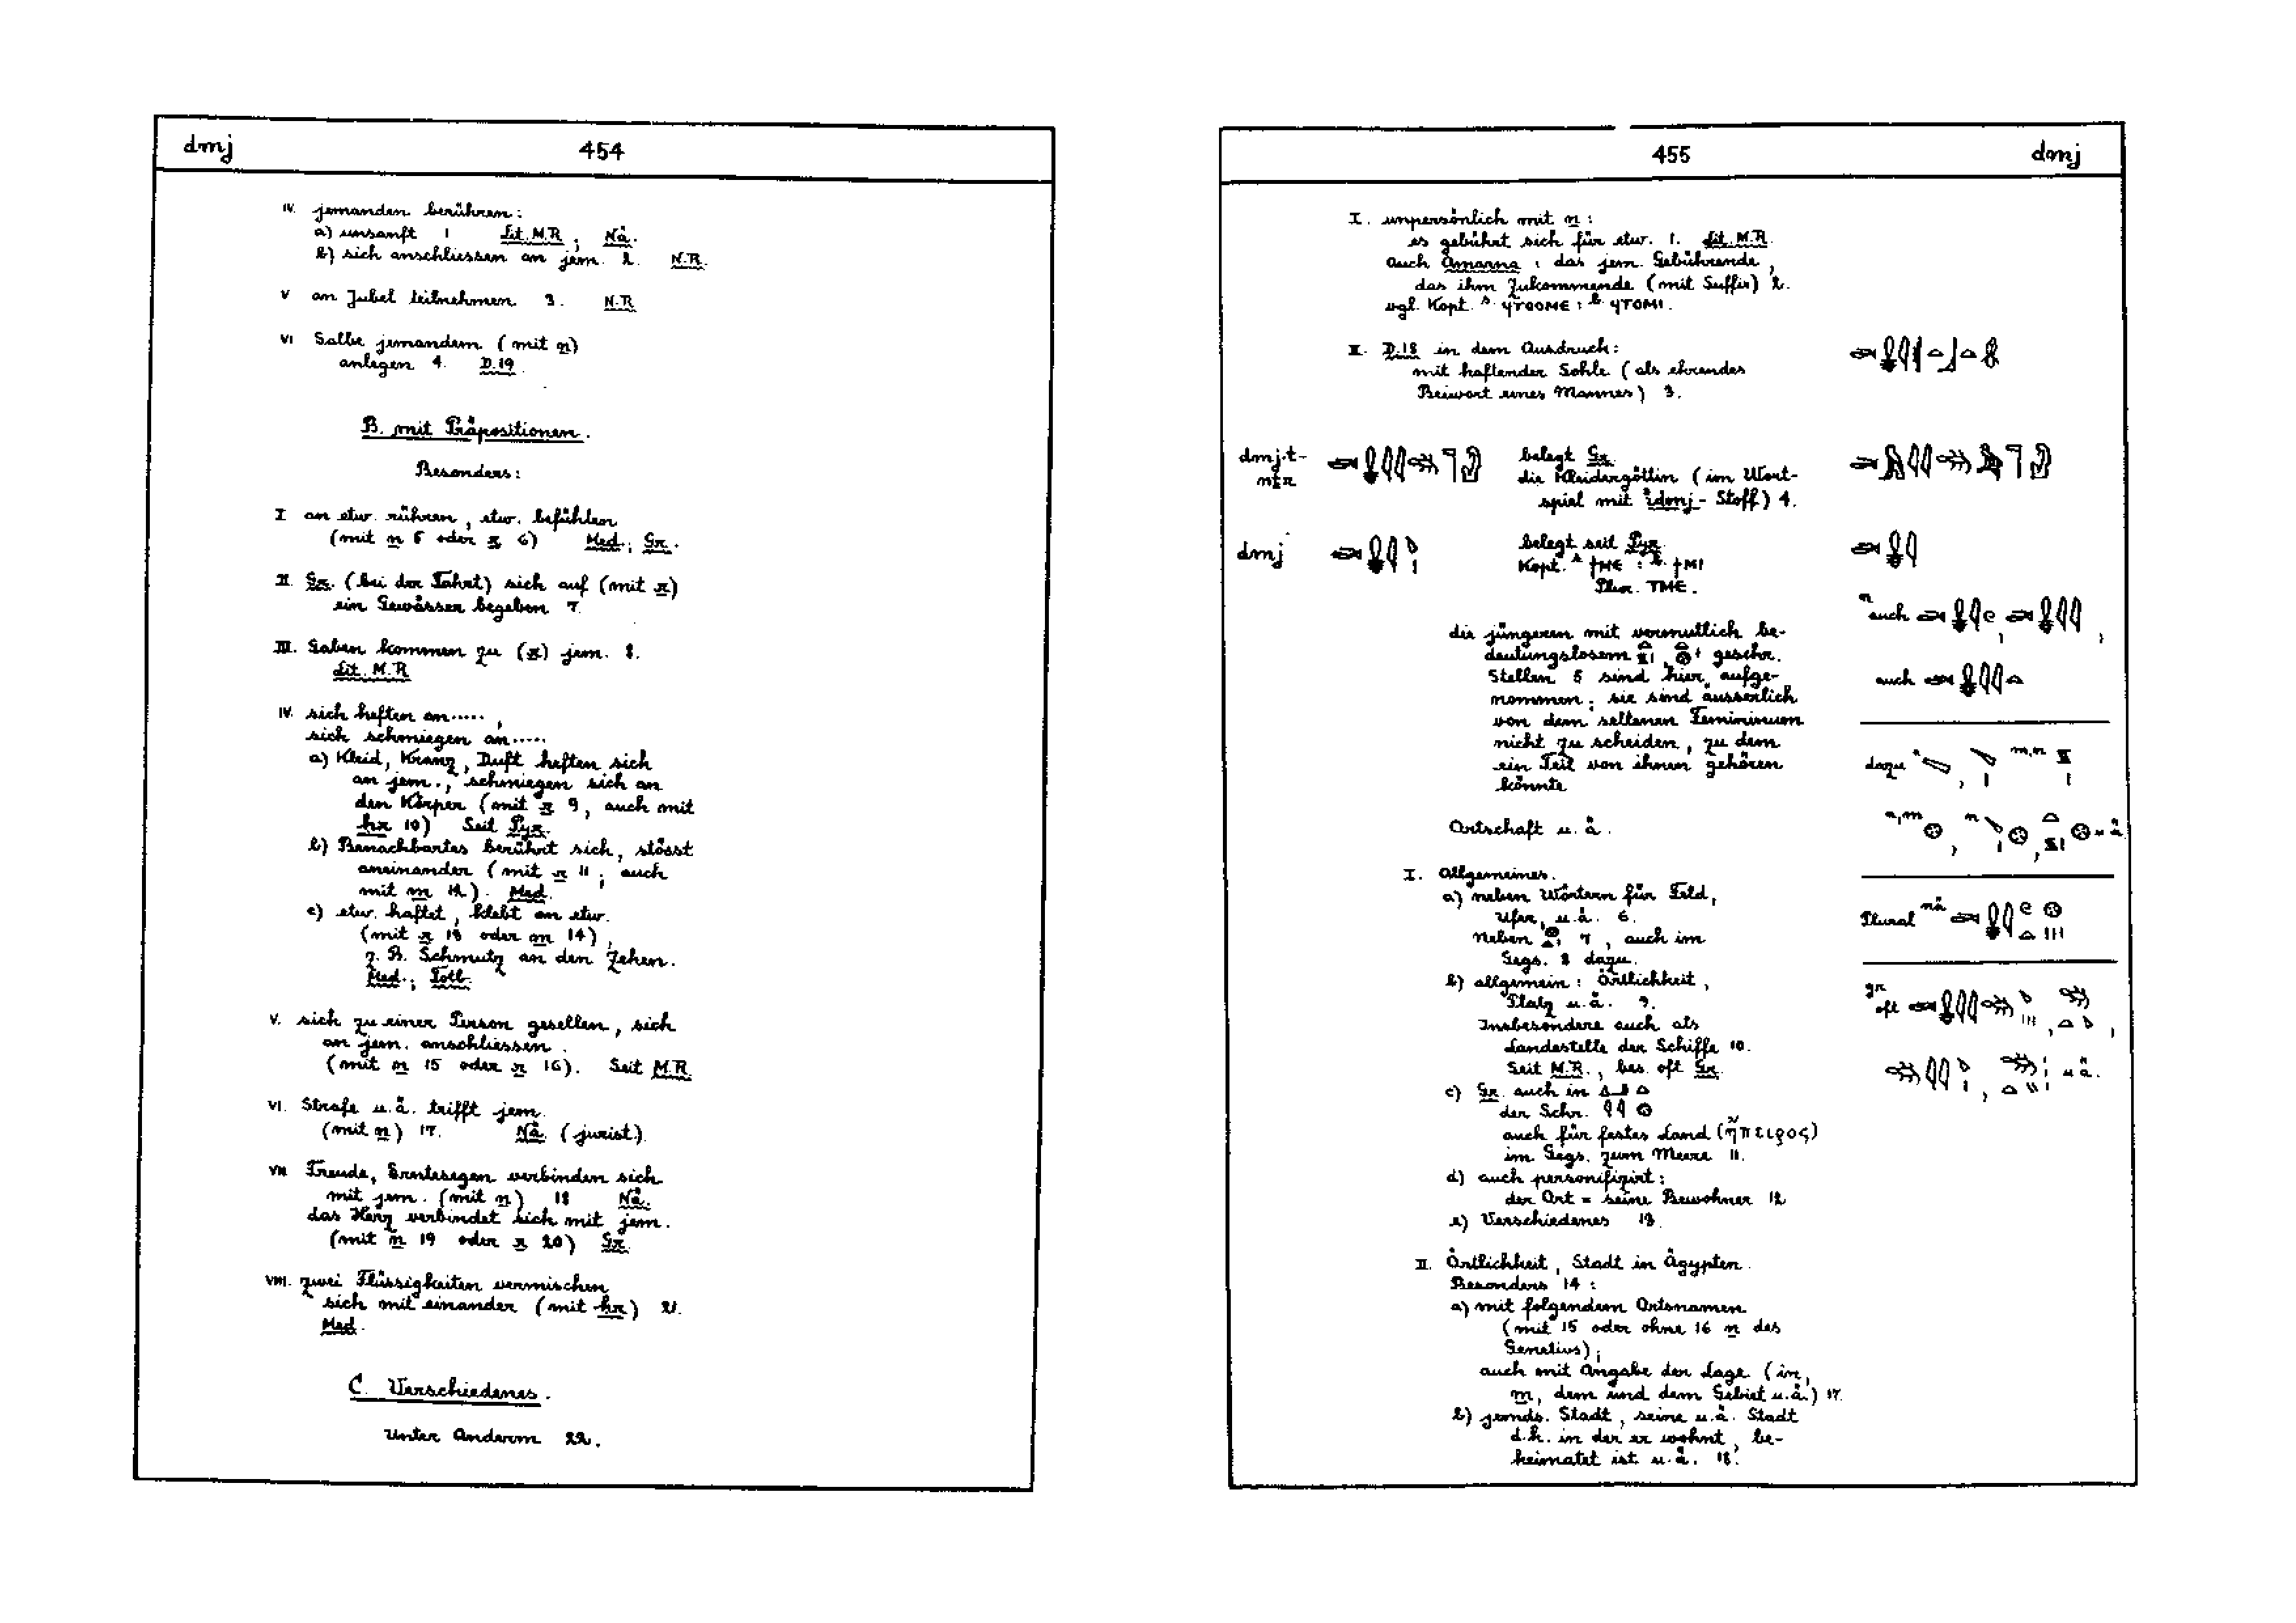 dmj 454
IV. jemanden berühren:
a) unsanft 1 Lit. M.R.; Nä.
b) sich anschliessen an jem. 2. N.R.
V an Jubel teilnehmen 3. N.R.
VI Salbe jemandem (mit n)
anlegen 4. D.19.
B. mit Präpositionen.
Besonders:
I an etw. rühren, etw. befühlen
(mit n 5 oder r 6) Med.; Gr.
II. Gr. (bei der Fahrt) sich auf (mit r)
ein Gewässer begeben 7.
III. Gaben kommen zu (r) jem. 8.
Lit. M.R.
IV. sich heften an.....,
sich schmiegen an.....
a) Kleid, Kranz, Duft heften sich
an jem., schmiegen sich an
den Körper (mit r 9, auch mit
ḥr 10) Seit Pyr.
b) Benachbartes berührt sich, stösst
aneinander (mit r 11; auch
mit m 12). Med.
c) etw. haftet, klebt an etw.
(mit r 13 oder m 14),
z.B. Schmutz an den Zehen.
Med.; Totb.
V. sich zu einer Person gesellen, sich
an jem. anschliessen.
(mit n 15 oder r 16). Seit M.R.
VI. Strafe u.ä. trifft jem.
(mit n) 17. Nä. (jurist.)
VII Freude, Erntesegen verbinden sich
mit jem. (mit n) 18 Nä.
das Herz verbindet sich mit jem.
(mit n 19 oder r 20) Gr.
VIII. zwei Flüssigkeiten vermischen
sich mit einander (mit ḥr) 21.
Med.
C. Verschiedenes.
Unter Anderm 22.
455 dmj
I. unpersönlich mit n:
es gebührt sich für etw. 1. Lit. M.R.
Auch Amarna: das jem. Gebührende,
das ihm Zukommende (mit Suffix) 2.
vgl. Kopt. s. ϥⲧⲟⲟⲙⲉ : b. ϥⲧⲟⲙⲓ.
II. D.18 in dem Ausdruck:
mit haftender Sohle (als ehrendes
Beiwort eines Mannes) 3.
dmj.t-
nṯr
belegt Gr.
die Kleidergöttin (im Wort-
spiel mit idmj-Stoff) 4.
dmj
belegt seit Pyr.
Kopt. s. ϯⲙⲉ : b. ϯⲙⲓ
Plur. ⲧⲙⲉ.
n auch
die jüngeren mit vermutlich be-
deutungslosem geschr.
Stellen 5 sind hier aufge-
nommen; sie sind äusserlich
von dem seltenen Femininum
nicht zu scheiden, zu dem
ein Teil von ihnen gehören
könnte
auch
dazu
Ortschaft u.ä.
I. Allgemeines.
a) neben Wörtern für Feld,
Ufer, u.ä. 6.
neben 7, auch im
Gegs. 8 dazu.
Plural nä
b) allgemein: Örtlichkeit,
Platz u.ä. 9.
Insbesondere auch als
Landestelle der Schiffe 10.
Seit M.R., bes. oft Gr.
gr oft
u.ä.
c) Gr. auch in
der Schr.
auch für festes Land (ἤπειρος)
im Gegs. zum Meere 11.
d) auch personifizirt:
der Ort = seine Bewohner 12
e) Verschiedenes 13.
II. Örtlichkeit, Stadt in Ägypten.
Besonders 14:
a) mit folgendem Ortsnamen
(mit 15 oder ohne 16 n des
Genetivs);
auch mit Angabe der Lage (in,
m, dem und dem Gebiet u.ä.) 17.
b) jemds. Stadt, seine u.ä. Stadt
d.h. in der er wohnt, be-
heimatet ist u.ä. 18.